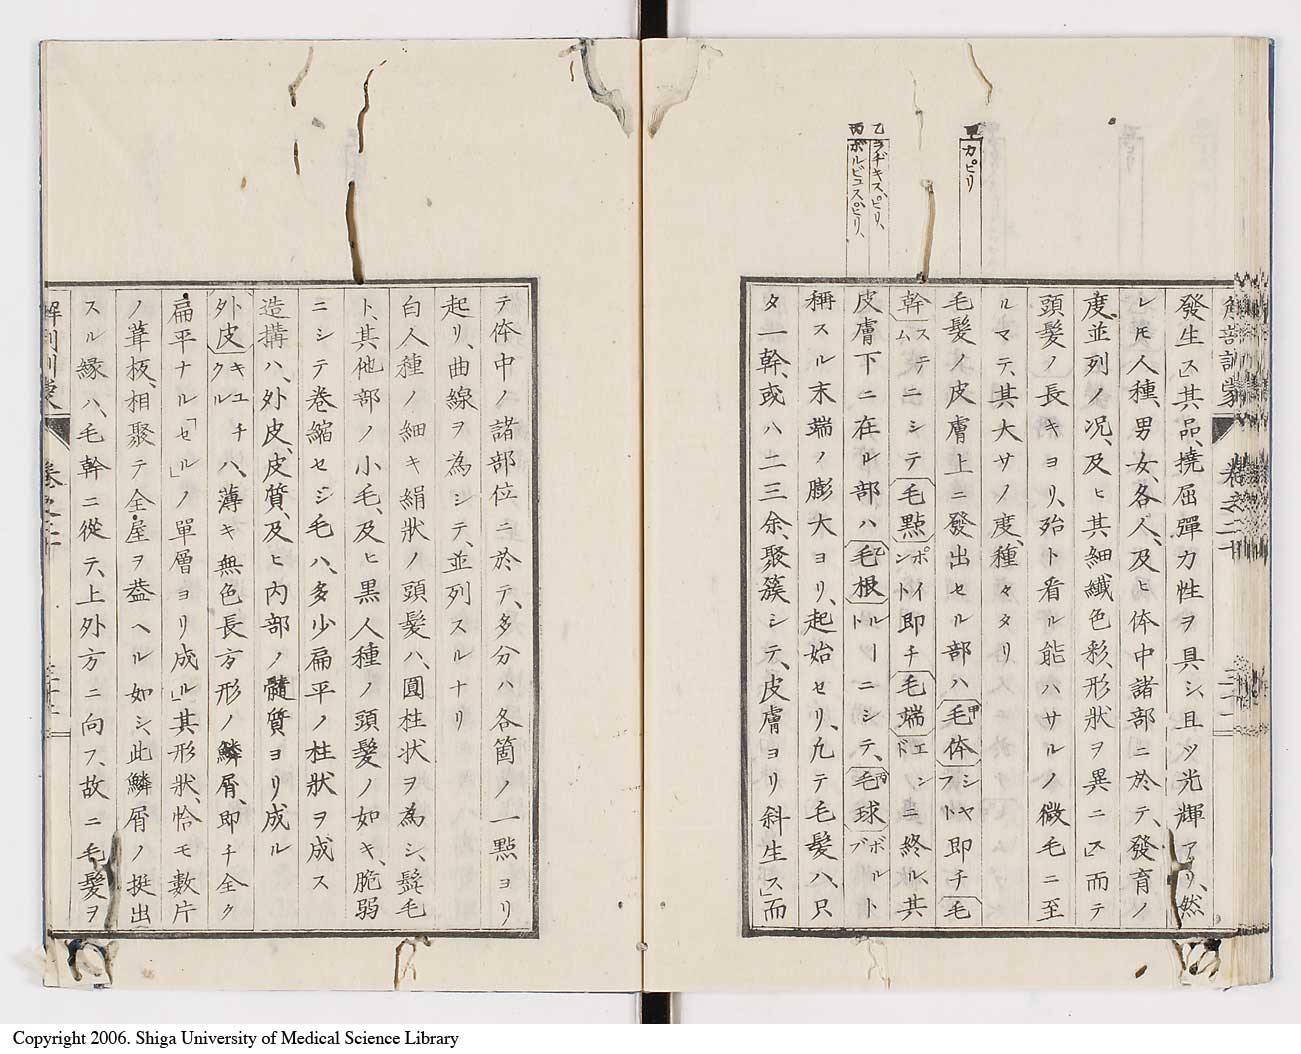 甲
カピリ
乙
ラヂキス、ピリ、
丙
ボルビュス、ピリ、
解剖訓蒙
卷之二十
發生ス其品、撓屈彈力性ヲ具シ、且ツ光輝アリ、然
レ𪜈人種、男女、各人、及ヒ体中諸部ニ於テ、發育ノ
度、並列ノ况、及ヒ其細纎色彩、形狀ヲ異ニス而テ
頭髮ノ長キヨリ、殆ト看ル能ハサルノ微毛ニ至
ルマテ、其大サノ度、種々タリ
毛髮ノ皮膚上ニ發出セル部ハ甲毛体シャフト即チ毛
幹ステムニシテ毛點ポイント即チ毛端エンドニ終ル、其
皮膚下ニ在ル部ハ乙毛根ルートニシテ、丙毛球ボルブト
稱スル末端ノ膨大ヨリ、起始セリ、凢テ毛髮ハ、只
タ一幹、或ハ二三余、聚簇シテ、皮膚ヨリ斜生ス而
テ体中ノ諸部位ニ於テ、多分ハ各箇ノ一點ヨリ
起リ、曲線ヲ為シテ、並列スルナリ
白人種ノ細キ絹狀ノ頭髮ハ、圓柱状ヲ為シ、髭毛
ト、其他部ノ小毛、及ヒ黒人種ノ頭髮ノ如キ、脆弱
ニシテ卷縮セシ毛ハ、多少扁平ノ柱狀ヲ成ス
造搆ハ、外皮、皮質、及ヒ内部ノ髓質ヨリ成ル
外皮キユチクルハ、薄キ無色長方形ノ鱗屑、即チ全ク
扁平ナル「セル」ノ單層ヨリ成ル」其形狀、恰モ數片
ノ葺板、相聚テ全屋ヲ葢ヘル如シ、此鱗屑ノ挺出
スル縁ハ、毛幹ニ從テ、上外方ニ向フ、故ニ毛髮ヲ
解剖訓蒙
卷之二十
Copyright 2006. Shiga University of Medical Science Library